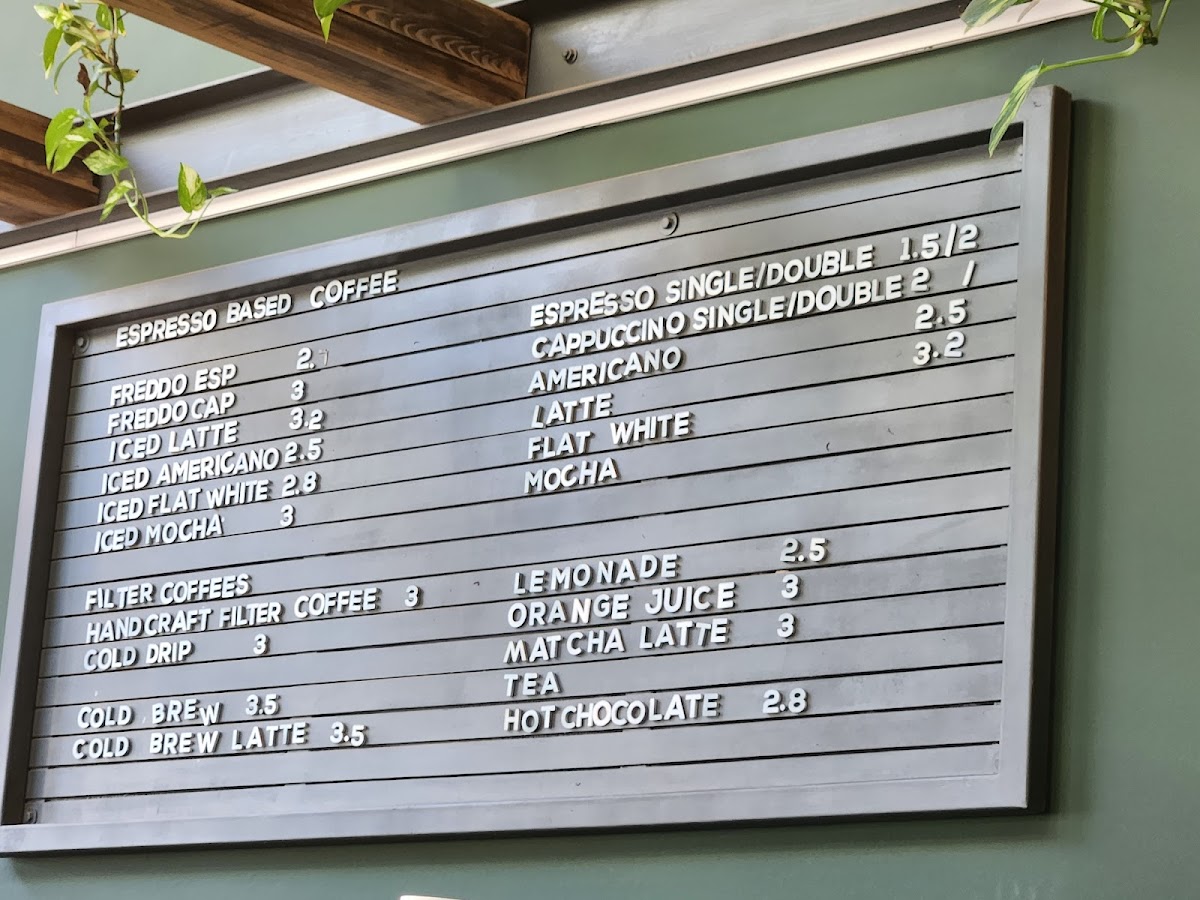 ESPRESSO BASED COFFEE
FREDDO ESP 2.
FREDDO CAP 3
ICED LATTE 3.2
ICED AMERICANO 2.5
ICED FLAT WHITE 2.8
ICED MOCHA 3
FILTER COFFEES
HANDCRAFT FILTER COFFEE 3
COLD DRIP 3
COLD BREW 3.5
COLD BREW LATTE 3.5
ESPRESSO SINGLE/DOUBLE 1.5/2
CAPPUCCINO SINGLE/DOUBLE 2 /
AMERICANO 2.5
LATTE 3.2
FLAT WHITE
MOCHA
LEMONADE 2.5
ORANGE JUICE 3
MATCHA LATTE 3
TEA
HOT CHOCOLATE 2.8